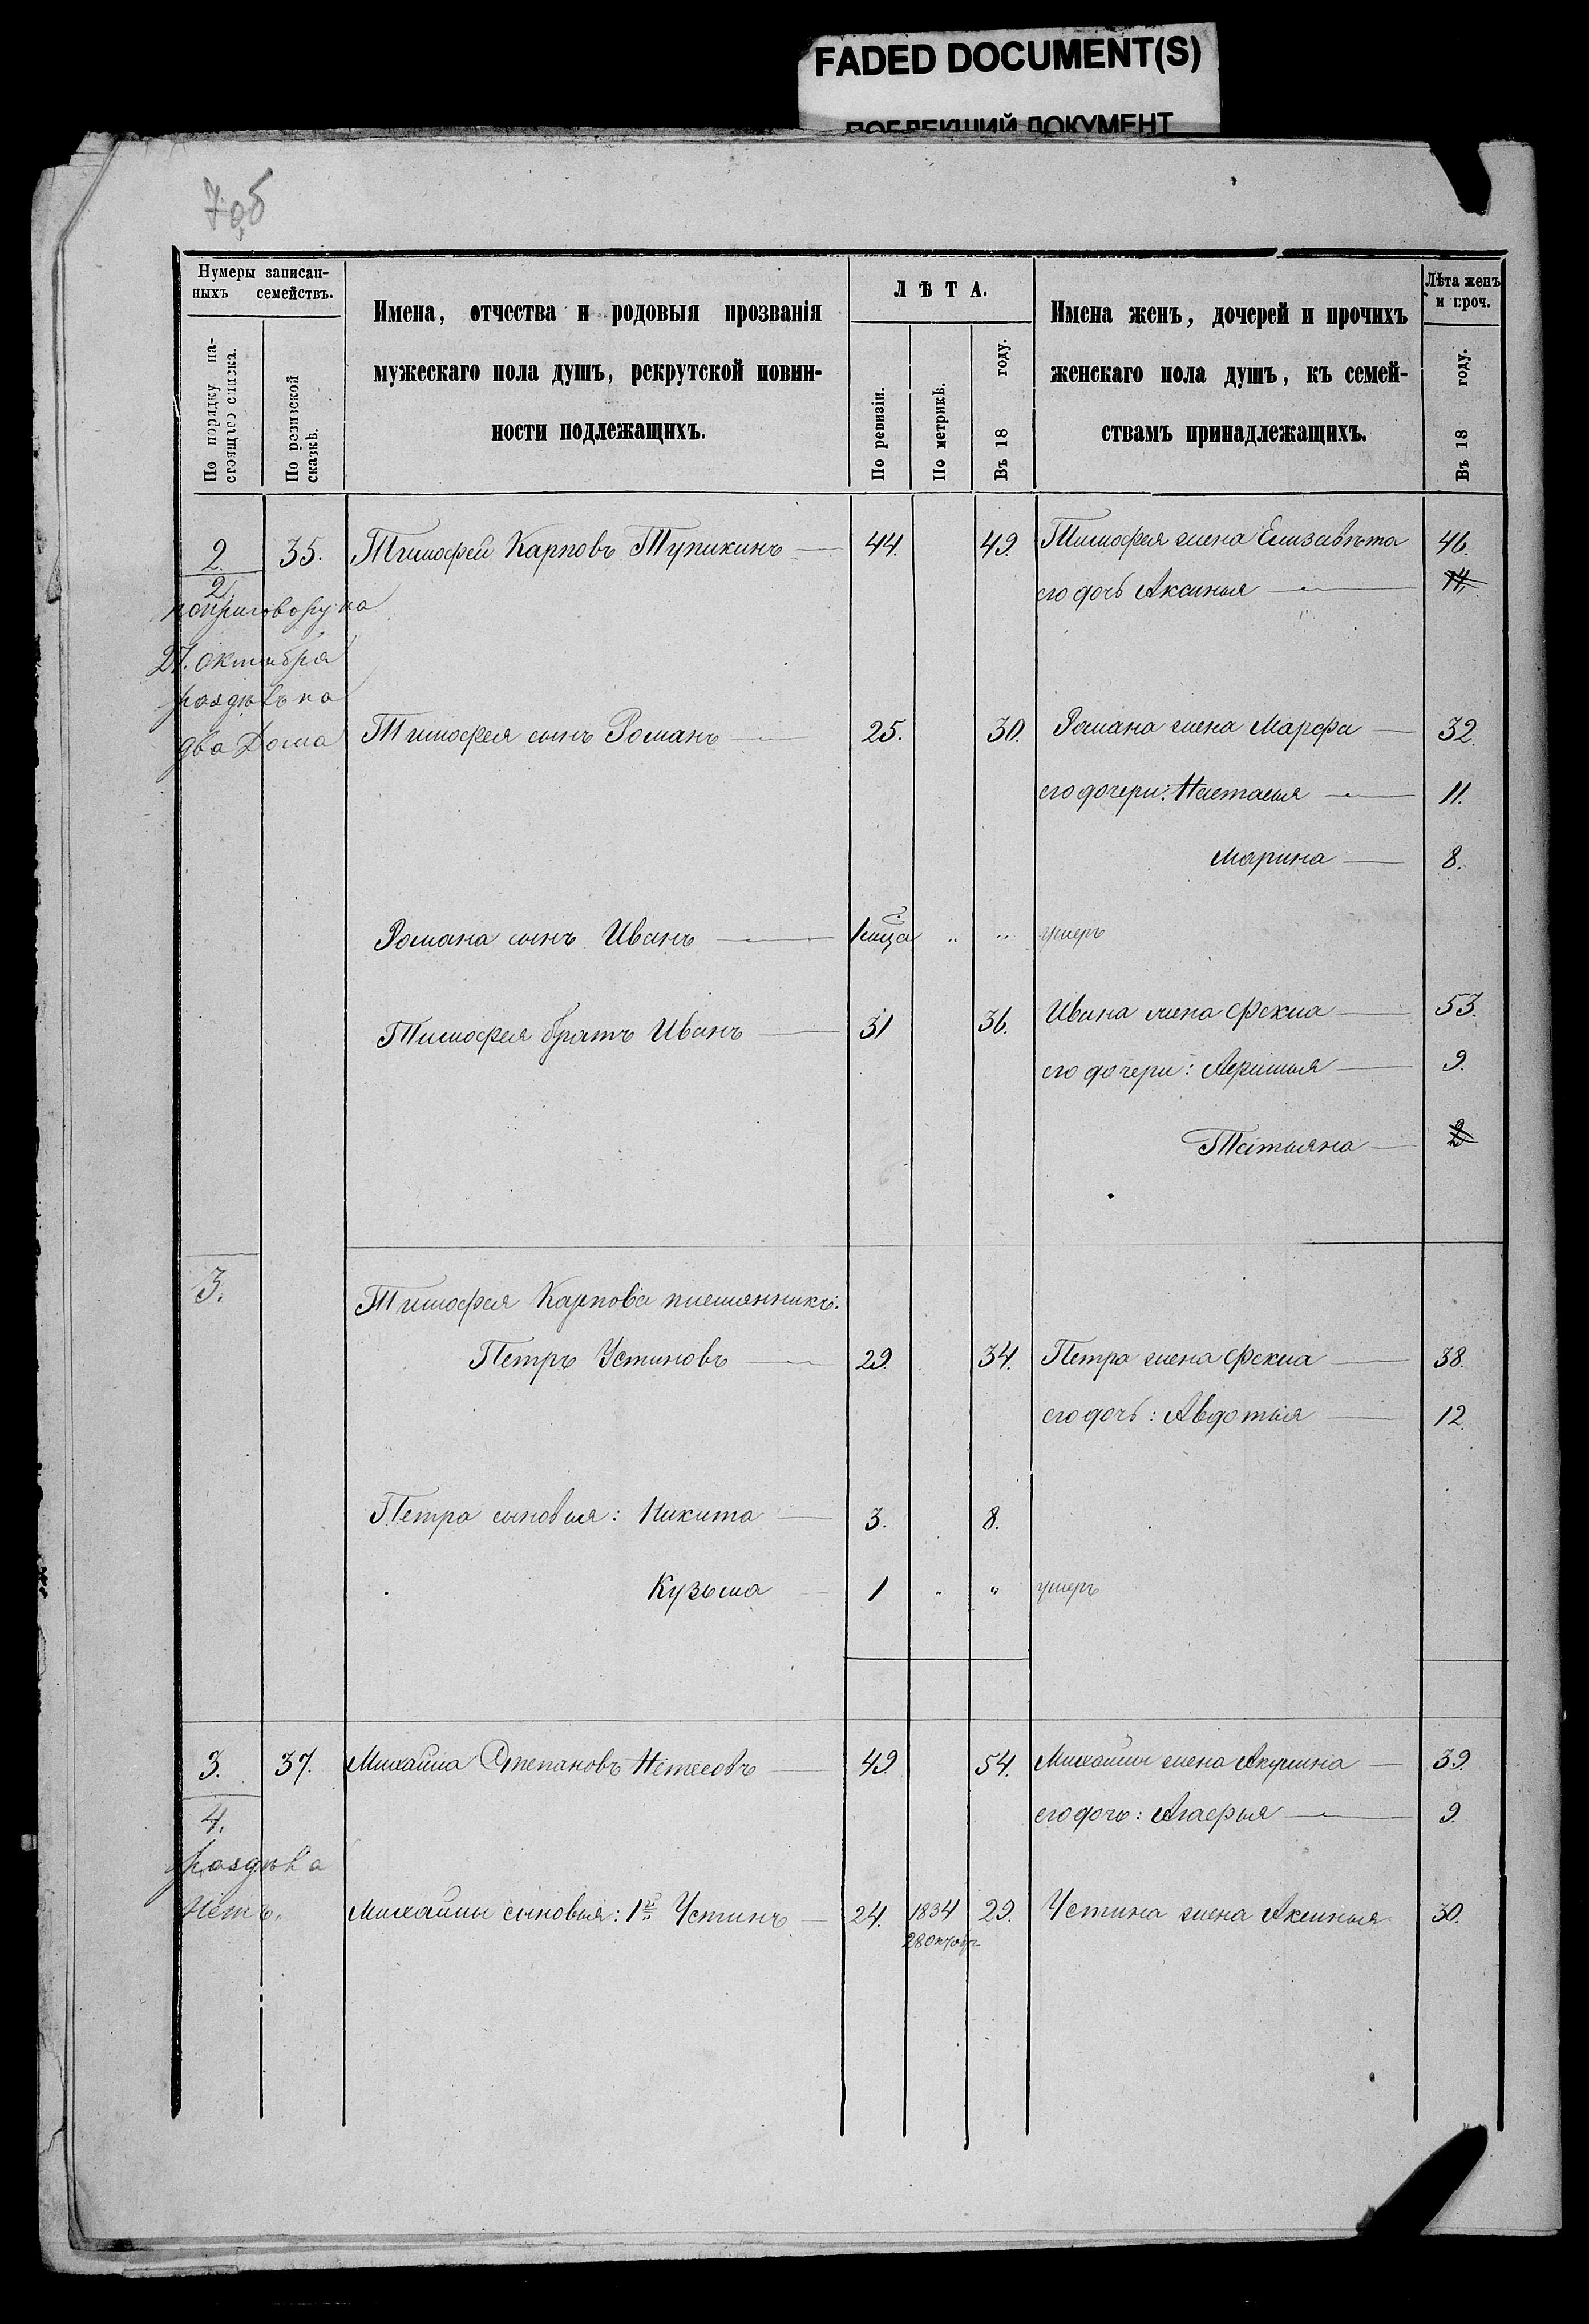 FADED DOCUMENT(S)
ПОБЛЕКШИЙ ДОКУМЕНТ
7об
Нумеры записан-
ныхъ семействъ.
По порядку на-
стоящаго списка.
По ревизской
сказкѣ.
Имена, отчества и родовыя прозванія
мужескаго пола душъ, рекрутской повин-
ности подлежащихъ.
ЛѢТА.
По ревизіи.
По метрикѣ.
Въ 18 году.
Имена женъ, дочерей и прочихъ
женскаго пола душъ, къ семей-
ствамъ принадлежащихъ.
Лѣта женъ
и проч.
Въ 18 году.
2. 35. Тимофей Карповъ Тупикинъ 44. 49. Тимофея жена Елизавѣта 46.
2.
его дочь Аксинья 14.
по приговору на
27. октября
раздѣлъ на
два Дома
Тимофея сынъ Романъ 25. 30. Романа жена Марфа 32.
его дочери: Настасья 11.
Марина 8.
Романа сынъ Иванъ „ „ умеръ
Тимофея братъ Иванъ 31 36. Ивана жена Фекла 53.
его дочери: 9.
Татьяна
3.
Тимофея Карпова племянникъ:
Петръ Устиновъ 29. 34. Петра жена Фекла 38.
его дочь: Авдотья 12.
Петра сыновья: Никита 3. 8.
Кузьма 1 „ „ умеръ
3. 37. Михайла Степановъ Нетесовъ 49. 54. Михайлы жена Акулина 39.
4.
его дочь: Агафья 9.
раздѣла
нетъ.
Михайлы сыновья: 1й Устинъ 24. 1834 29. Устина жена Аксинья 30.
28 октябр